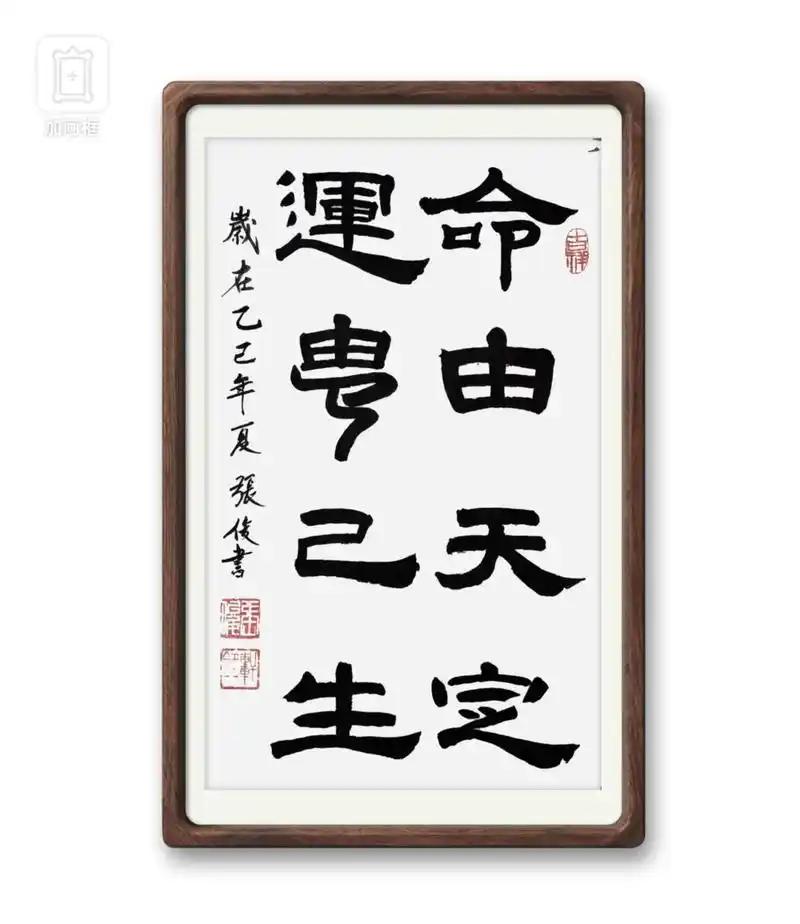 命由天定
運甹己生
歲在乙巳年夏 張俊書
吉祥
加画框